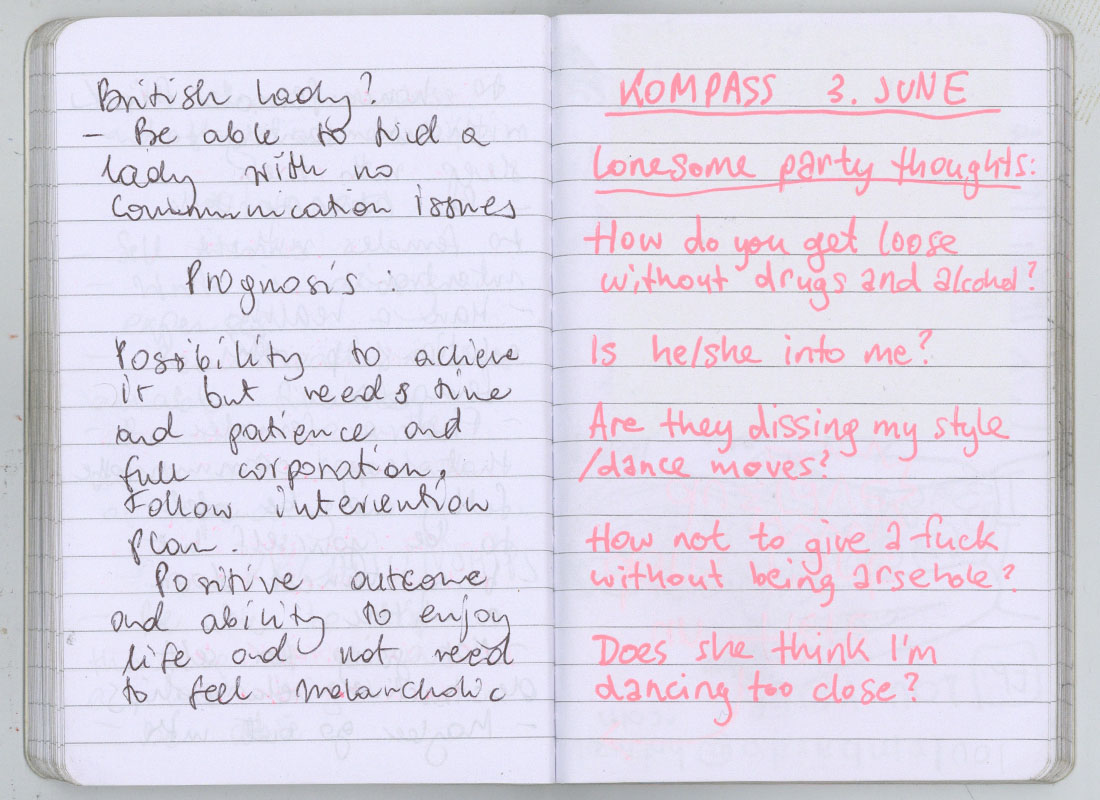 British lady?
- Be able to find a
lady with no
communication issues
Prognosis :
Possibility to achieve
it but needs time
and patience and
full corporation.
Follow intervention
plan.
Positive outcome
and ability to enjoy
life and not need
to feel melancholic
KOMPASS 3. JUNE
Lonesome party thoughts:
How do you get loose
without drugs and alcohol?
Is he/she into me?
Are they dissing my style
/dance moves?
How not to give a fuck
without being arsehole?
Does she think I'm
dancing too close?